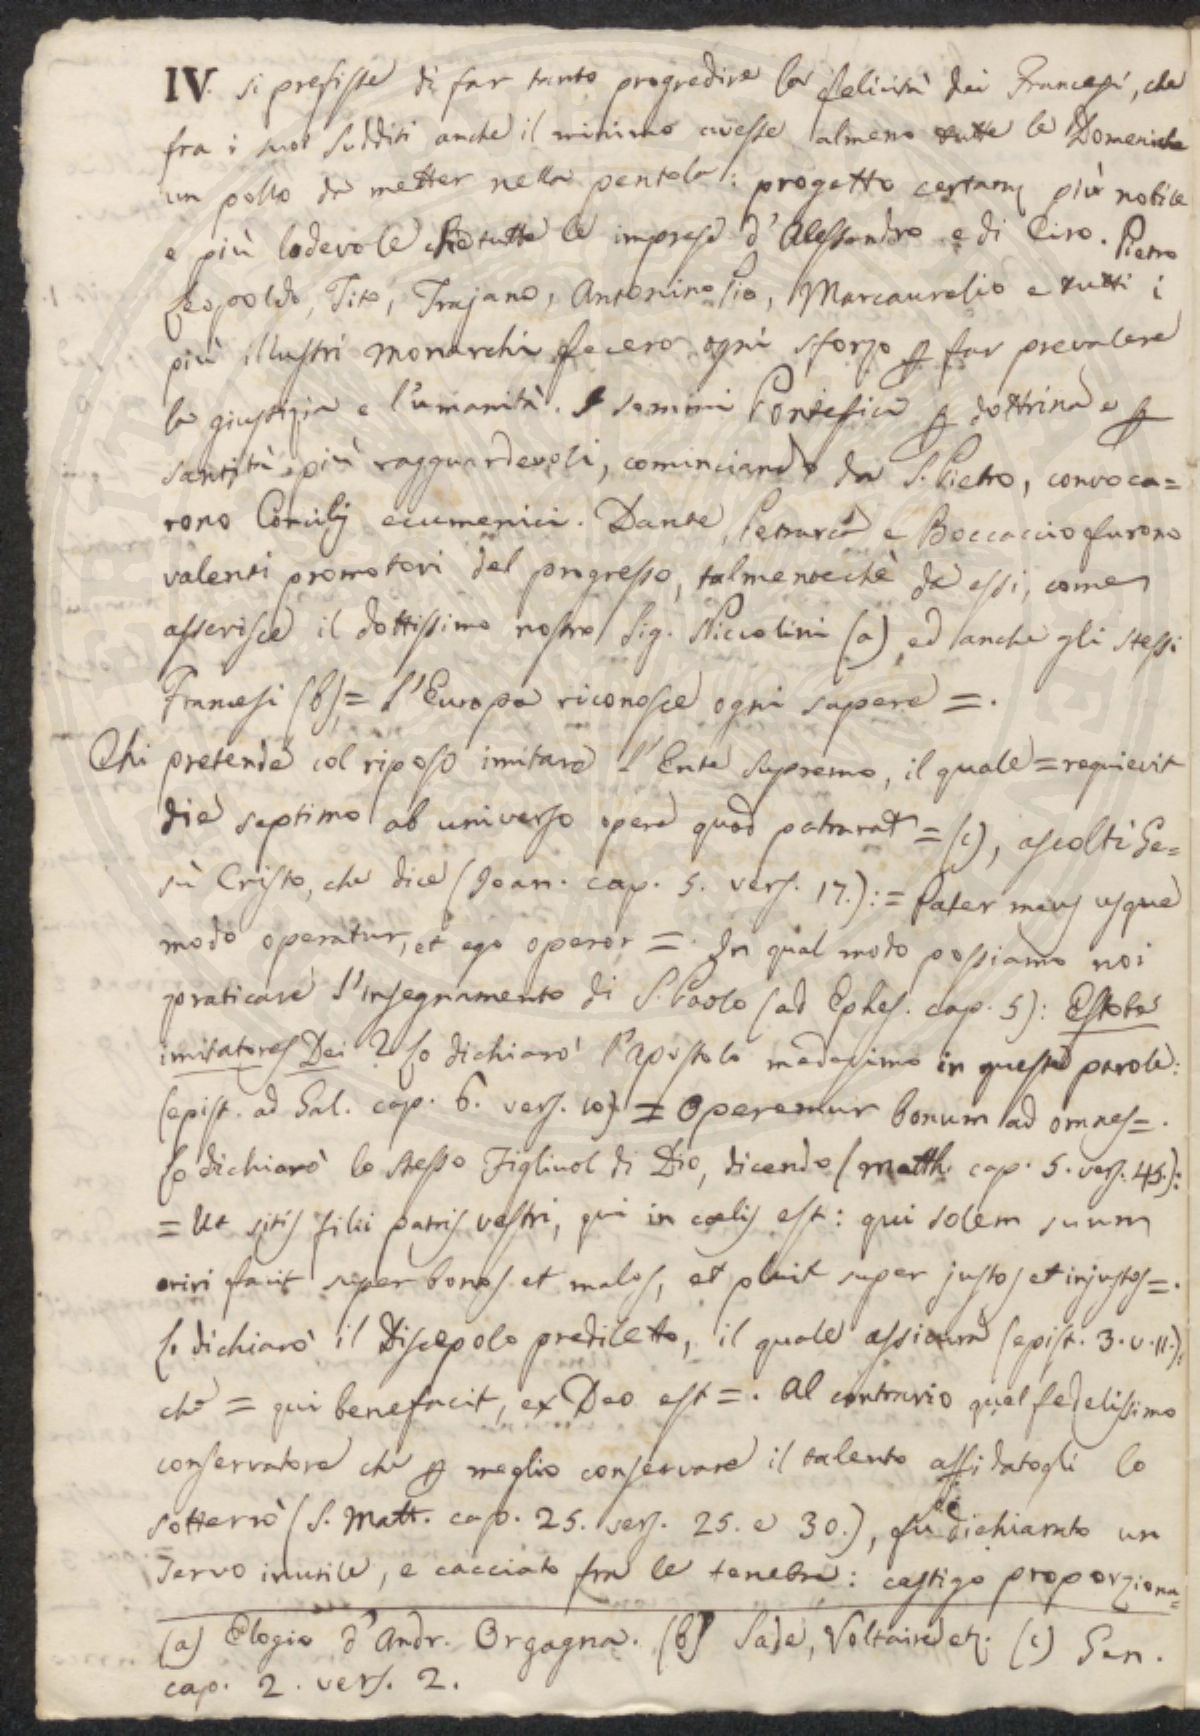 IV. si prefisse di far tanto progredire la felicità dei Francesi, che
fra i suoi sudditi anche il minimo avesse almeno tutte le Domeniche
un pollo da metter nella pentola: progetto certam. più nobile
e più lodevole che tutte le imprese d'Alessandro e di Ciro. Pietro
Leopoldo, Tito, Trajano, Antonino Pio, Marcaurelio e tutti i
più illustri monarchi fecero ogni sforzo p far prevalere
la giustizia e l'umanità. I sommi Pontefici p dottrina e p
santità più ragguardevoli, cominciando da S. Pietro, convoca=
rono Concilj ecumenici. Dante, Petrarca e Boccaccio furono
valenti promotori del progresso, talmentechè da essi, come
asserisce il dottissimo nostro Sig. Niccolini (a), ed anche gli stessi
Francesi (b), = l'Europa riconosce ogni sapere =.
Chi pretende col riposo imitare l'Ente supremo, il quale = requievit
die septimo ab universo opere quod patrarat = (c), ascolti Ge=
sù Cristo, che dice (Joan. cap. 5. vers. 17.): = Pater meus usque
modo operatur, et ego operor =. In qual modo possiamo noi
praticare l'insegnamento di S. Paolo (ad Ephes. cap. 5): Estote
imitatores Dei? Lo dichiarò l'Apostolo medesimo in queste parole:
(epist. ad Gal. cap. 6. vers. 10) = Operemur bonum ad omnes =.
Lo dichiarò lo stesso Figliuol di Dio, dicendo (Matth. cap. 5. vers. 45.):
= Ut sitis filii patris vestri, qui in cœlis est: qui solem suum
oriri facit super bonos et malos, et pluit super justos et injustos =.
Lo dichiarò il Discepolo prediletto, il quale assicura (epist. 3. v. 11.):
che = qui benefacit, ex Deo est =. Al contrario quel fedelissimo
conservatore che p meglio conservare il talento affidatogli lo
sotterrò (S. Matt. cap. 25. vers. 25. e 30.), fu dichiarato un
servo inutile, e cacciato fra le tenebre: castigo proporziona=
(a) Elogio d'Andr. Orgagna. (b) Sade, Voltaire etc. (c) Gen.
cap. 2. vers. 2.